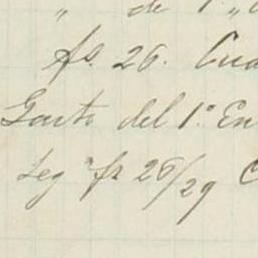 „ de 1. „
fs. 26. Cua
Gasto del 1º En
Leg " fs 28/29 C